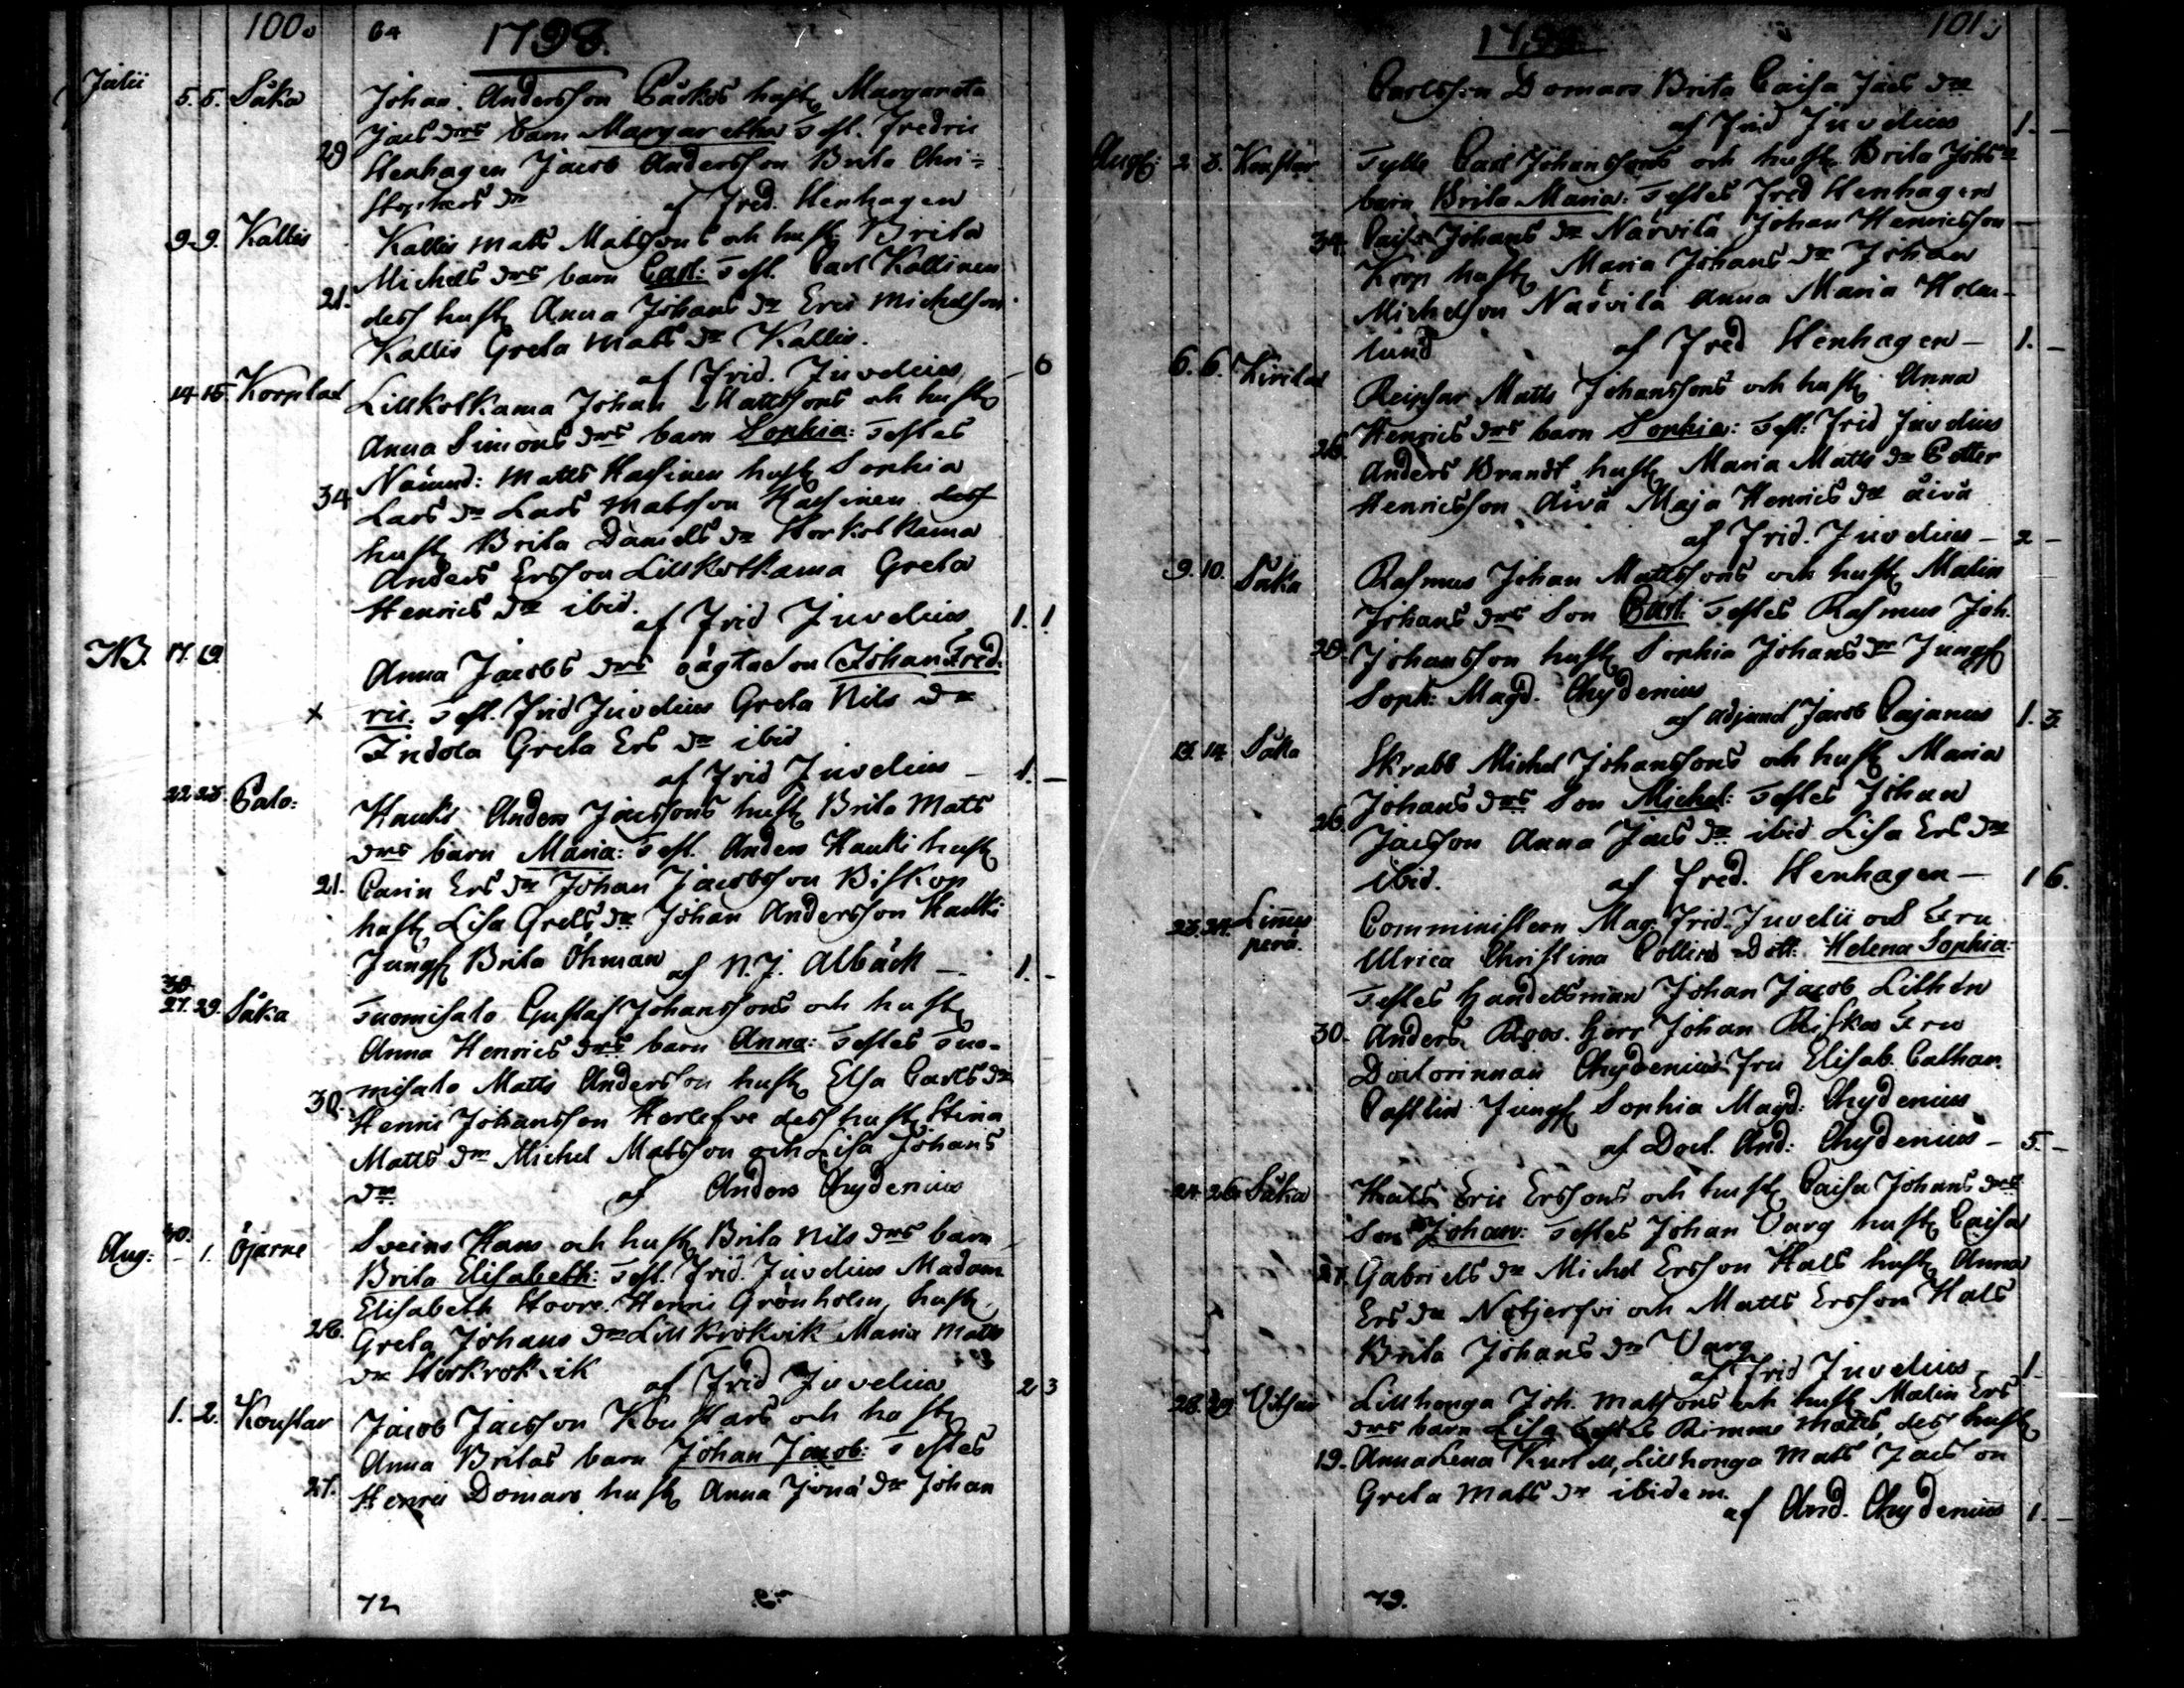 100.
64
1798.
Julii
5. 5. Såka
Johan Andersson Påckos hust. Margareta
Jacs drs barn Margaretha Test. Fredric
29
Stenhagen Jacob Andersson Brita Chri=
stophers dr af Fred. Stenhagen
9. 9. Kallis
Kallis Matts Matssons och hust. Brita
Michels drs barn Carl: Test. Carl Kallinen
21.
dess hust. Anna Johans dr Eric Michelson
Kallis Greta Matts dr Kallis.
af Frid. Juvelius - 6
14 15. Korplax
Lillkotkama Johan Mattssons och hust.
Anna Simons drs barn Sophia: Testes
Nämnd: Matts Hassinen hust. Sophia
34
Lars dr Lars Matsson Hassinen dess
hust. Brita Daniels dr Storkotkama
Anders Ersson Lillkotkama Greta
Henrics dr ibid.
af Frid Juvelius 1. 1
NB. 17. 19.
Anna Jacobs drs oägta son Johan Fred-
x ric. Test. Frid Juvelius Greta Nils dr
Indola Greta Ers dr ibid
af Frid Juvelius - 1. -
22 23. Palo:
Hauki Anders Jacssons hust. Brita Mats
drs barn Maria: Test. Anders Hauki hust.
21. Carin Ers dr Johan Jacobsson Biskop
hust. Lisa Grels dr Johan Andersson Hauki
Jungf. Brita Öhman af N. J. Albäck - 1. -
30.
27. 29. Såka
Tuomisalo Gustaf Johanssons och hust.
Anna Henrics drs barn Anna: Testes Tuo-
misalo Matts Andersson hust. Elsa Carls dr
30.
Henric Johansson Herlefve dess hust. Stina
Matts dr Michel Matsson och Lisa Johans
dr af Anders Chydenius
Aug: 30. - 1. Öjarne
Sveins Hans och hust. Brita Nils drs barn
Brita Elisabeth: Test. Frid. Juvelius Madam
Elisabeth Hovre. Henric Grönholm, hust.
26.
Greta Johans dr Lill Krokvik Maria Matts
dr Storkrokvik
af Frid Juvelius 2 3
1. 2. Konstar
Jacob Jacsson Konstars och hust.
Anna Britas barn Johan Jacob: Testes
27.
Henric Domars hust. Anna Jona dr Johan
72
101.
Carlsson Domars Brita Caisa Jacs dr
af Frid Juvelius 1. -
Aug: 2 3. Konstar
Tylle Carl Johanssons och hust. Brita Johs drs
barn Brita Maria: Testes Fred Stenhagen
34. Caisa Johans dr Närvilä Johan Henricsson
Korp hust. Maria Johans dr Johan
Michelson Närvilä Anna Maria Holm-
lund af Fred Stenhagen - 1. -
6. 6. Kirilax
Reipsar Matts Johanssons och hust. Anna
Henrics drs barn Sophia: Test: Frid Juvelius
26.
Anders Brandt hust. Maria Matts dr Petter
Henricsson Äivä Maja Henrics dr äivä
af Frid. Juvelius - 2 -
9. 10. Såka
Rasmus Johan Mattssons och hust. Malin
Johans drs Son Carl: Testes Rasmus Joh.
29.
Johansson hust. Sophia Johans dr Jungf.
Soph: Magd. Chydenius
af Adjunct Jacob Cajanus 1. 3.
13. 14. Såka
Skrabb Michel Johanssons och hust. Maria
Johans drs Son Michel: Testes Johan
26.
Jacsson Anna Jacs dr ibid Lisa Ers dr
ibid. af Fred. Stenhagen - 1 6.
23. 24. Linnus
perä.
Comministern Mag. Frid. Juvelii och Fru
Ulrica Christina Pollins Dott. Helena Sophia:
Testes Handelsman Johan Jacob Lithén
30. Anders Roos. Herr Johan Riska Fru
Doctorinnan Chydenius Fru Elisab. Cathar.
Castlin Jungf. Sophia Magd: Chydenius
af Doct. And: Chydenius - 5. -
24. 26. Såka
Hals Eric Erssons och hust. Caisa Johans drs
Son Johan: Testes Johan Varg hust. Caisa
27. Gabriels dr Michel Ersson Hals hust. Anna
Ers dr Nobjersvi och Matts Ersson Hals
Brita Johans dr Varg
af Frid Juvelius 1.
28. 29 Vitsar
Lillhonga Joh. Matssons och hust. Malin Ers
drs barn Lisa Testes Rimmi Matts, des hust.
19. Anna Lena Kurtell, Lillhonga Matts Jacsson
Greta Mats dr ibidem.
af And. Chydenius 1. -
73.